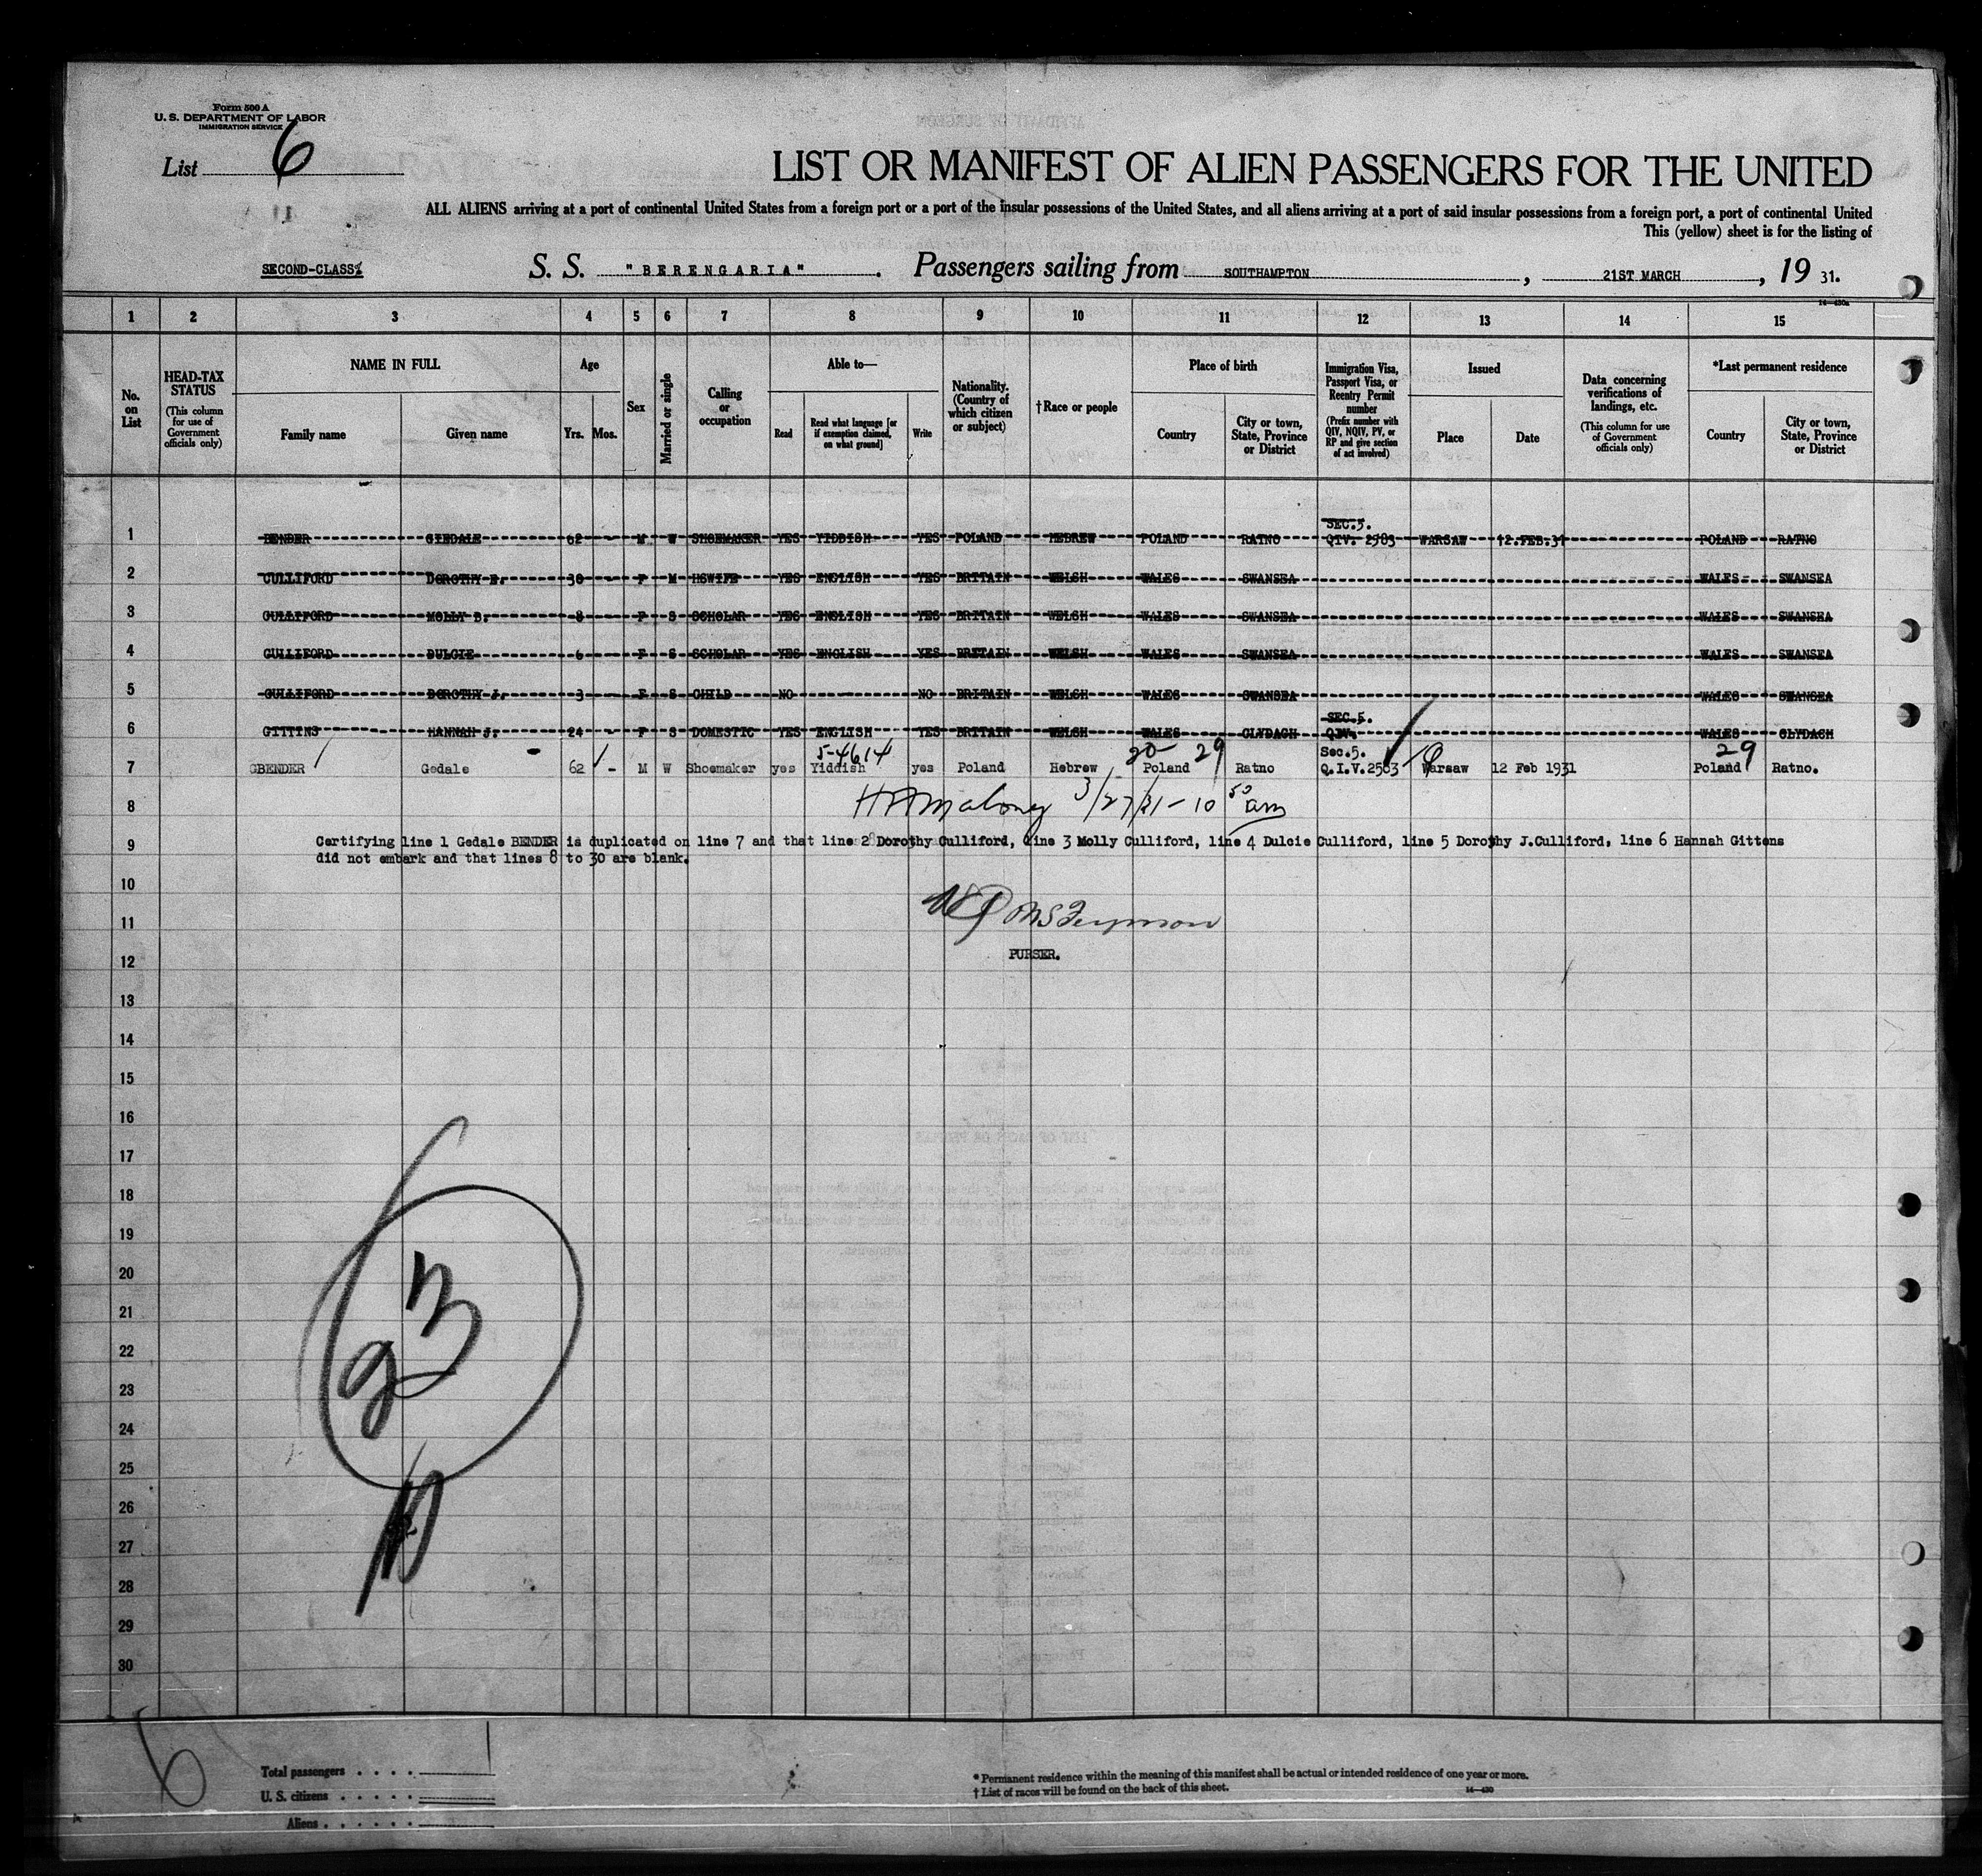 Form 500 A
U. S. DEPARTMENT OF LABOR
IMMIGRATION SERVICE
List 6
LIST OR MANIFEST OF ALIEN PASSENGERS FOR THE UNITED
ALL ALIENS arriving at a port of continental United States from a foreign port or a port of the insular possessions of the United States, and all aliens arriving at a port of said insular possessions from a foreign port, a port of continental United
This (yellow) sheet is for the listing of
SECOND-CLASS S. S. "BERENGARIA". Passengers sailing from SOUTHAMPTON, 21ST MARCH, 19 31.
14—430a
1 2 3 4 5 6 7 8 9 10 11 12 13 14 15
No. on List
HEAD-TAX STATUS (This column for use of Government officials only)
NAME IN FULL
Family name Given name
Age
Yrs. Mos.
Sex
Married or single
Calling or occupation
Able to—
Read Read what language [or if exemption claimed, on what ground] Write
Nationality. (Country of which citizen or subject)
†Race or people
Place of birth
Country City or town, State, Province or District
Immigration Visa, Passport Visa, or Reentry Permit number (Prefix number with QIV, NQIV, PV, or RP and give section of act involved)
Issued
Place Date
Data concerning verifications of landings, etc. (This column for use of Government officials only)
*Last permanent residence
Country City or town, State, Province or District
SEC.5.
1 BENDER GIEDALE 62 - M W SHOEMAKER YES YIDDISH YES POLAND HEBREW POLAND RATNO QIV. 2583 WARSAW 12.FEB.31 POLAND RATNO
2 CULLIFORD DOROTHY E. 30 - F M HSWIFE YES ENGLISH YES BRITAIN WELSH WALES SWANSEA WALES SWANSEA
3 CULLIFORD MOLLY D. 8 - F S SCHOLAR YES ENGLISH YES BRITAIN WELSH WALES SWANSEA WALES SWANSEA
4 CULLIFORD DULCIE 6 - F S SCHOLAR YES ENGLISH YES BRITAIN WELSH WALES SWANSEA WALES SWANSEA
5 CULLIFORD DOROTHY J. 3 - F S CHILD NO NO BRITAIN WELSH WALES SWANSEA WALES SWANSEA
SEC.5.
6 GITTINS HANNAH J. 24 - F S DOMESTIC YES ENGLISH YES BRITAIN WELSH WALES CLYDACH QIV. WALES CLYDACH
5-4614 20- 29 Sec.5. 29
7 GBENDER Gedale 62 - M W Shoemaker yes Yiddish yes Poland Hebrew Poland Ratno Q.I.V.2583 Warsaw 12 Feb 1931 Poland Ratno.
8 HAMaloney 3/27/31 - 10 50 am
9 Certifying line 1 Gedale BENDER is duplicated on line 7 and that line 2 Dorothy Culliford, line 3 Molly Culliford, line 4 Dulcie Culliford, line 5 Dorothy J.Culliford, line 6 Hannah Gittens
did not embark and that lines 8 to 30 are blank.
10
11
PURSER.
12
13
14
15
16
17
18
19
20
21
22
23
24
25
26
27
28
29
30
6
Total passengers . . . . 1
U. S. citizens . . . . .
Aliens . . . . . .
* Permanent residence within the meaning of this manifest shall be actual or intended residence of one year or more.
† List of races will be found on the back of this sheet.
14—430